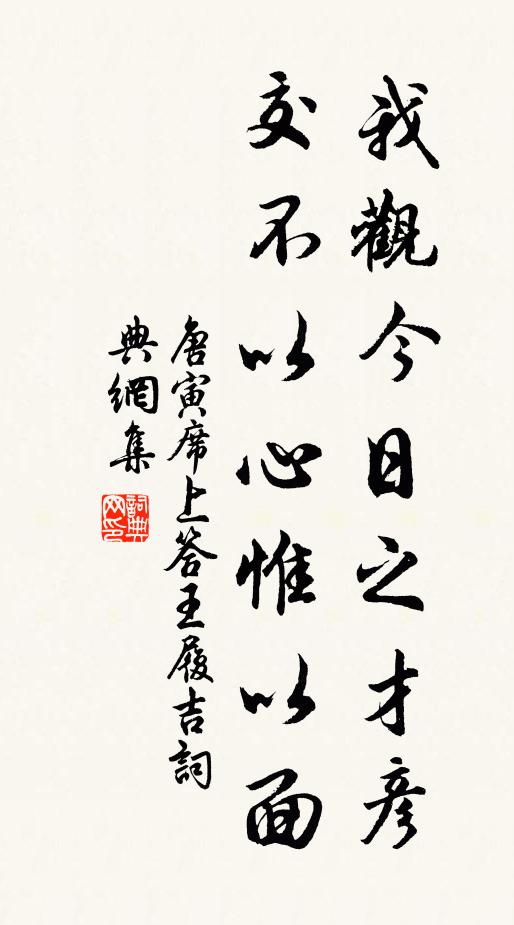 我觀今日之才彥
交不以心惟以面
唐寅席上答王履吉詞
典網集
詞典网印